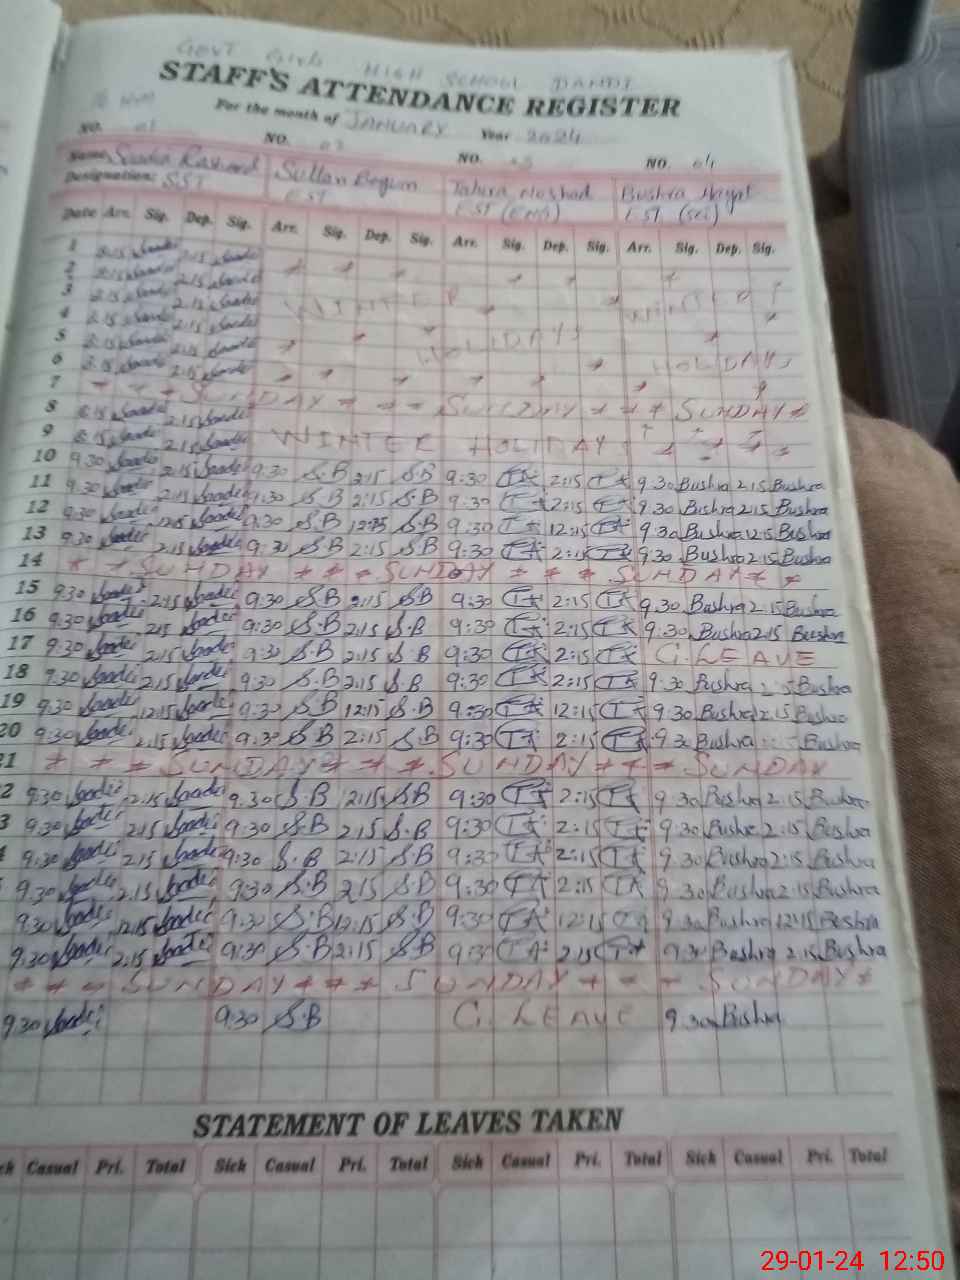 GOVT Girls HIGH SCHOOL BANDI
STAFF'S ATTENDANCE REGISTER
For the month of JANUARY Year 2024
NO. 01 NO. 02 NO. 03 NO. 04
Name Saadia Rasheed Sultan Begum Tahira Noshad Bushra Hayat
Designation: SST EST EST (Eng) EST (Sci)
Date Arr. Sig. Dep. Sig. Arr. Sig. Dep. Sig. Arr. Sig. Dep. Sig. Arr. Sig. Dep. Sig.
1 8:15 Saadia 2:15 Saadia
2 8:15 Saadia 2:15 Saadia
3 8:15 Saadia 2:15 Saadia WINTER WINTER
4 8:15 Saadia 2:15 Saadia
5 8:15 Saadia 2:15 Saadia HOLIDAYS
6 8:15 Saadia 2:15 Saadia HOLIDAYS
7 SUNDAY SUNDAY SUNDAY
8 8:15 Saadia 2:15 Saadia
9 8:15 Saadia 2:15 Saadia WINTER HOLIDAY
10 9:30 Saadia 2:15 Saadia 9:30 S.B 2:15 S.B 9:30 2:15 9:30 Bushra 2:15 Bushra
11 9:30 Saadia 2:15 Saadia 9:30 S.B 2:15 S.B 9:30 2:15 9:30 Bushra 2:15 Bushra
12 9:30 Saadia 12:15 Saadia 9:30 S.B 12:15 S.B 9:30 12:15 9:30 Bushra 12:15 Bushra
13 9:30 Saadia 2:15 Saadia 9:30 S.B 2:15 S.B 9:30 2:15 9:30 Bushra 2:15 Bushra
14 * * SUNDAY * * * SUNDAY * * * SUNDAY * *
15 9:30 Saadia 2:15 Saadia 9:30 S.B 2:15 S.B 9:30 2:15 9:30 Bushra 2:15 Bushra
16 9:30 Saadia 2:15 Saadia 9:30 S.B 2:15 S.B 9:30 2:15 9:30 Bushra 2:15 Bushra
17 9:30 Saadia 2:15 Saadia 9:30 S.B 2:15 S.B 9:30 2:15 C. LEAVE
18 9:30 Saadia 2:15 Saadia 9:30 S.B 2:15 S.B 9:30 2:15 9:30 Bushra 2:15 Bushra
19 9:30 Saadia 12:15 Saadia 9:30 S.B 12:15 S.B 9:30 12:15 9:30 Bushra 2:15 Bushra
20 9:30 Saadia 2:15 Saadia 9:30 S.B 2:15 S.B 9:30 2:15 9:30 Bushra Bushra
21 * * * SUNDAY * * * SUNDAY * * * SUNDAY
2 9:30 Saadia 2:15 Saadia 9:30 S.B 2:15 S.B 9:30 2:15 9:30 Bushra 2:15 Bushra
3 9:30 Saadia 2:15 Saadia 9:30 S.B 2:15 S.B 9:30 2:15 9:30 Bushra 2:15 Bushra
9:30 Saadia 2:15 Saadia 9:30 S.B 2:15 S.B 9:30 2:15 9:30 Bushra 2:15 Bushra
9:30 Saadia 2:15 Saadia 9:30 S.B 2:15 S.B 9:30 2:15 9:30 Bushra 2:15 Bushra
9:30 Saadia 12:15 Saadia 9:30 S.B 12:15 S.B 9:30 12:15 9:30 Bushra 12:15 Bushra
9:30 Saadia 2:15 Saadia 9:30 S.B 2:15 S.B 9:30 2:15 9:30 Bushra 2:15 Bushra
* * * SUNDAY * * * SUNDAY * * * SUNDAY *
9:30 Saadia 9:30 S.B C. LEAVE 9:30 Bushra
STATEMENT OF LEAVES TAKEN
Casual Pri. Total Sick Casual Pri. Total Sick Casual Pri. Total Sick Casual Pri. Total
29-01-24 12:50